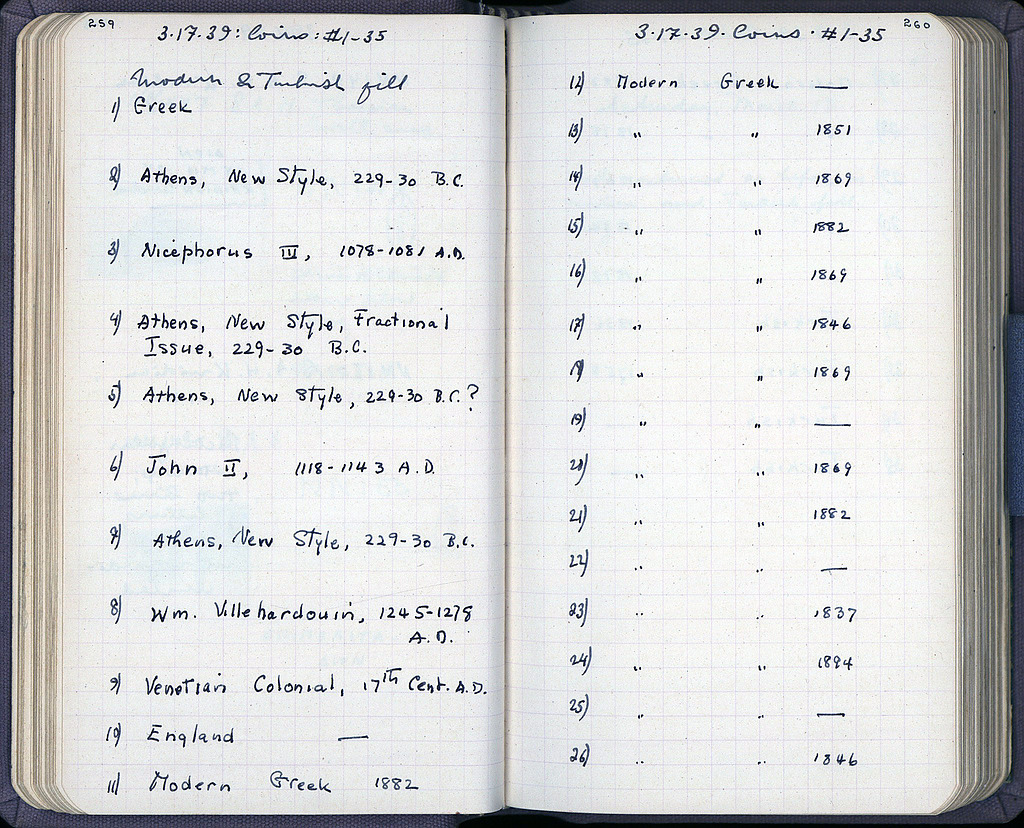 259
3.17.39: Coins: #1-35
Modern & Turkish fill
1) Greek
2) Athens, New Style, 229-30 B.C.
3) Nicephorus III, 1078-1081 A.D.
4) Athens, New Style, Fractional
Issue, 229-30 B.C.
5) Athens, New Style, 229-30 B.C.?
6) John II, 1118-1143 A.D.
7) Athens, New Style, 229-30 B.C.
8) Wm. Villehardouin, 1245-1278
A.D.
9) Venetian Colonial, 17th Cent. A.D.
10) England —
11) Modern Greek 1882
260
3.17.39. Coins. #1-35
12) Modern Greek —
13) " " 1851
14) " " 1869
15) " " 1882
16) " " 1869
17) " " 1846
18) " " 1869
19) " " —
20) " " 1869
21) " " 1882
22) " " —
23) " " 1837
24) " " 1894
25) " " —
26) " " 1846